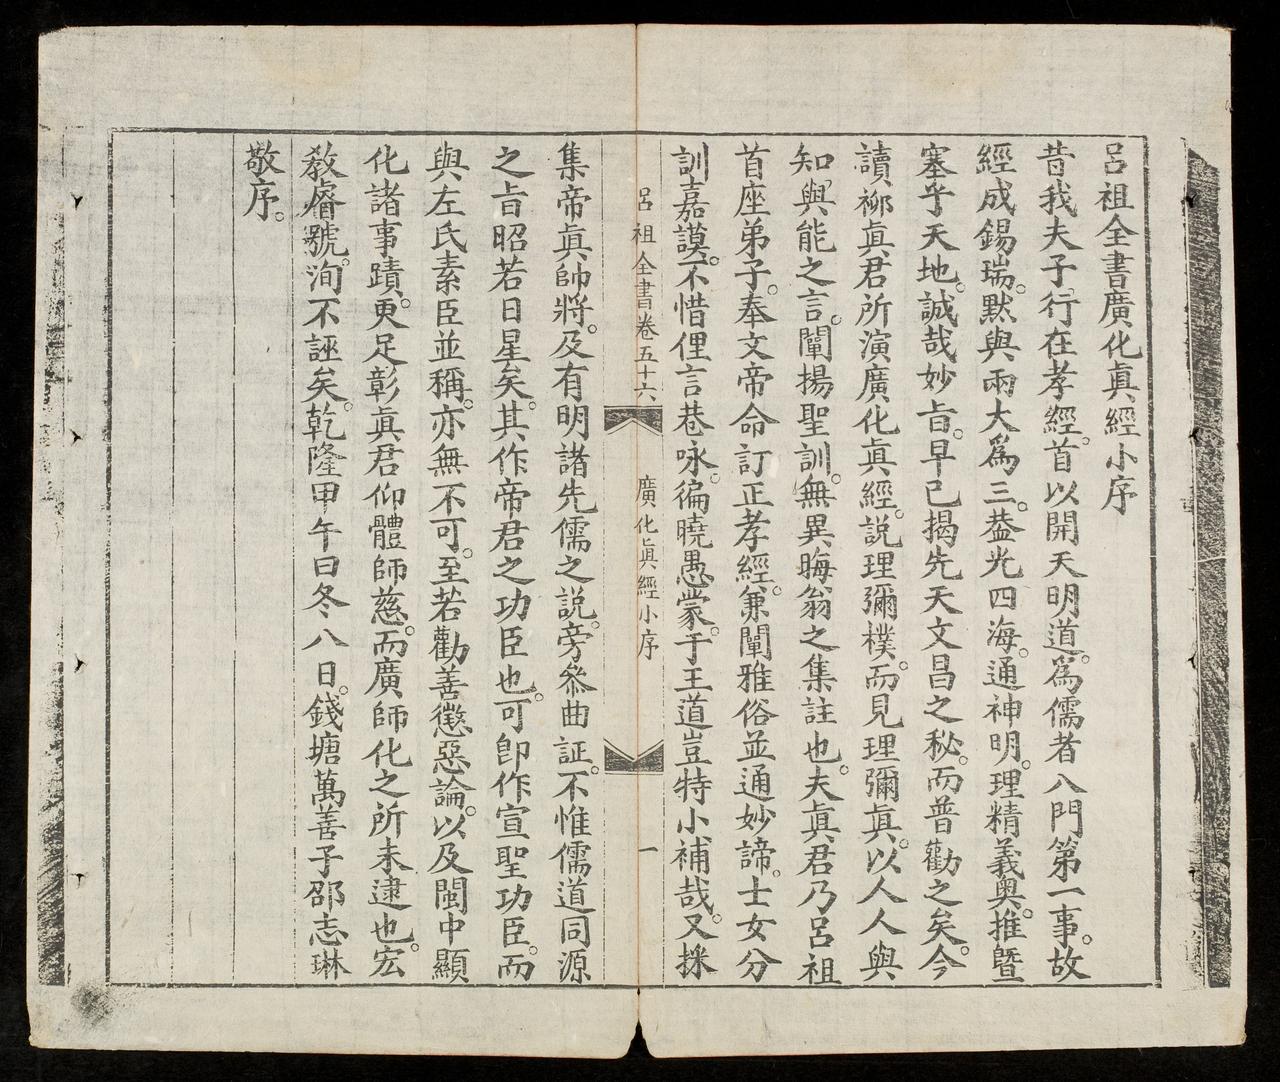 呂祖全書廣化眞經小序
昔我夫子行在孝經。首以開天明道。爲儒者八門第一事。故
經成錫瑞。黙與兩大爲三。葢光四海。通神明。理精義奥。推曁
塞乎天地。誠哉妙旨。早已揭先天文昌之秘。而普勸之矣。今
讀栁眞君所演廣化眞經。説理彌樸。而見理彌眞。以人人與
知與能之言。闡揚聖訓。無異晦翁之集註也。夫眞君乃呂祖
首座弟子。奉文帝命訂正孝經。兼闡雅俗並通妙諦。士女分
訓嘉謨。不惜俚言巷咏。徧曉愚蒙。于王道豈特小補哉。又採
呂祖全書卷五十六
廣化眞經小序
一
集帝眞帥將。及有明諸先儒之説。旁叅曲証。不惟儒道同源
之旨昭若日星矣。其作帝君之功臣也。可卽作宣聖功臣。而
與左氏素臣並稱。亦無不可。至若勸善懲惡論。以及閩中顯
化諸事蹟。更足彰眞君仰體師慈。而廣師化之所未逮也。宏
敎睿號。洵不誣矣。乾隆甲午曰冬八日。錢塘萬善子邵志琳
敬序。